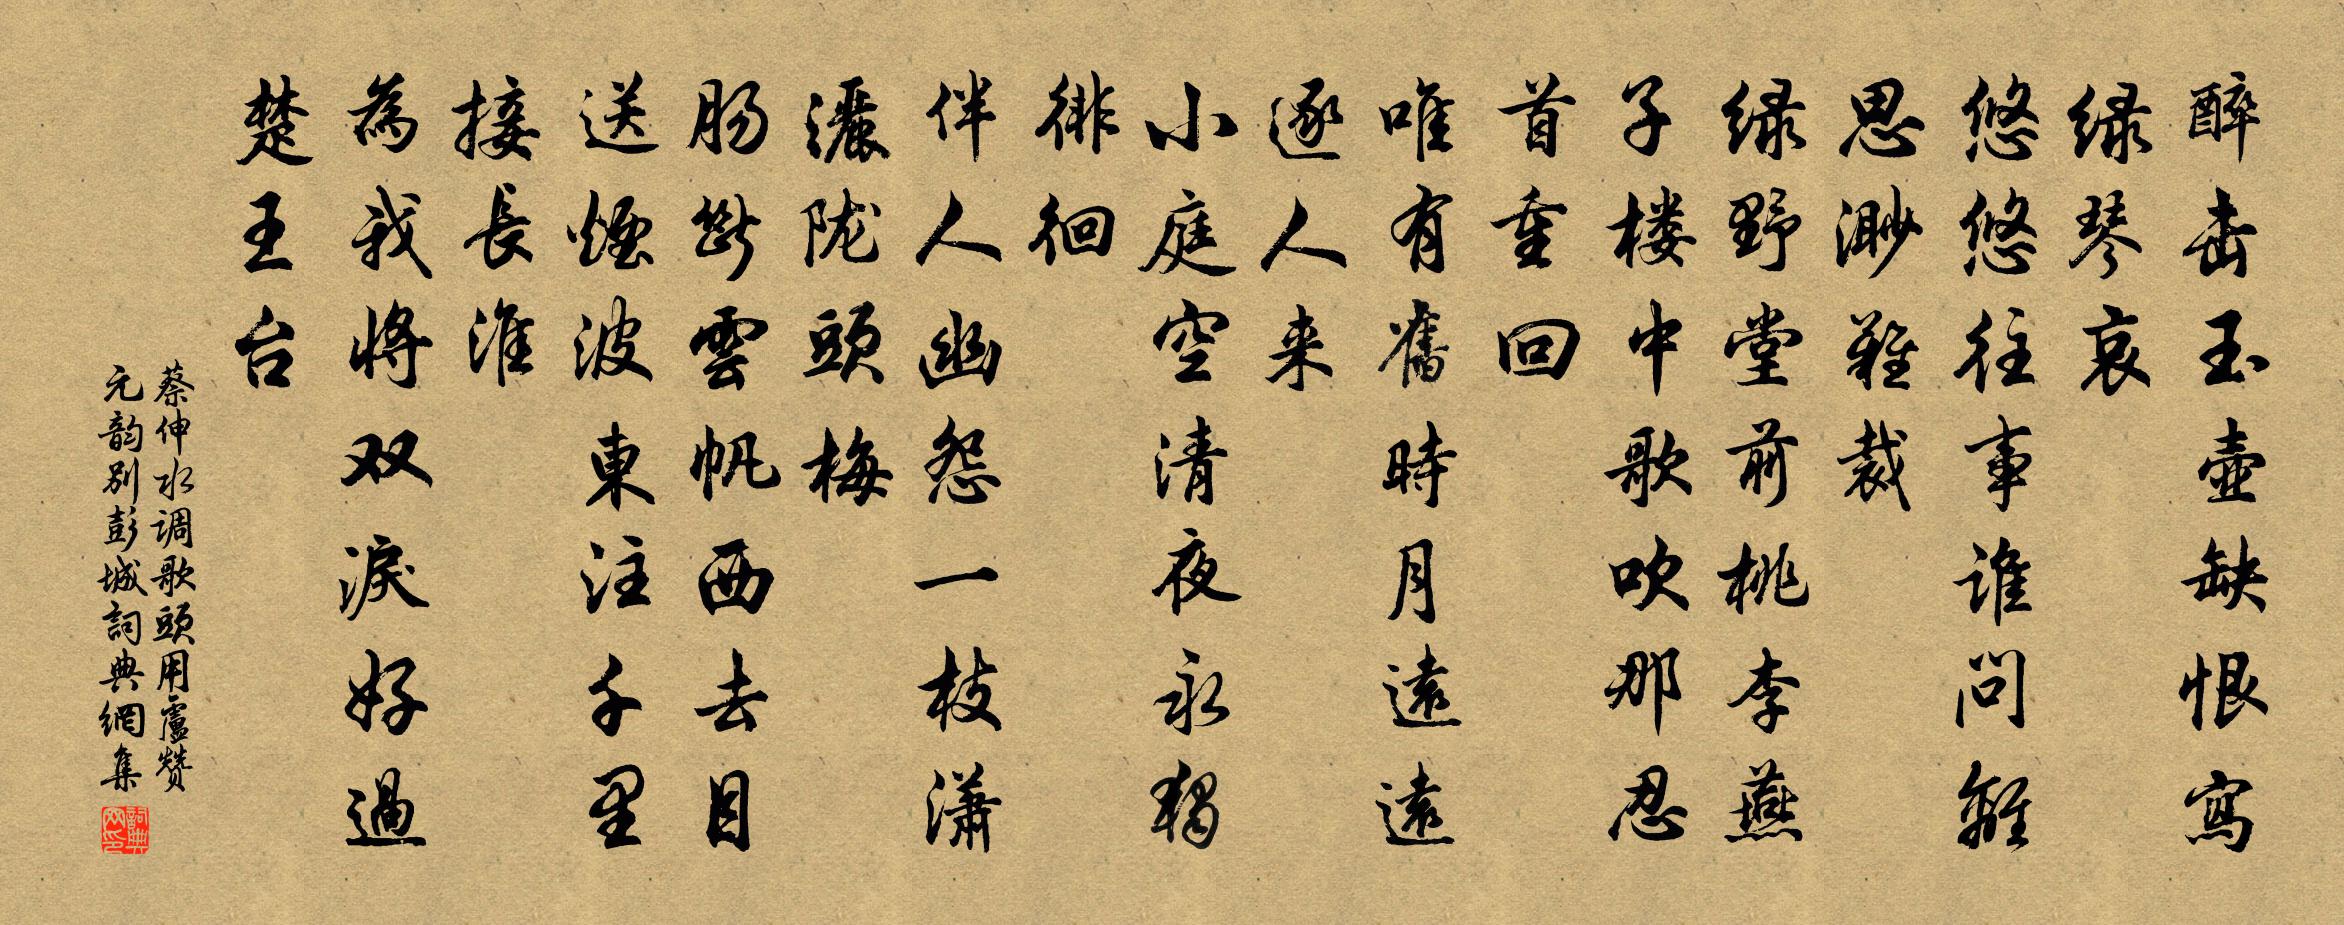 醉击玉壶缺恨寫
绿琴哀
悠悠往事谁问離
思渺難裁
绿野堂前桃李燕
子楼中歌吹那忍
首重回
唯有舊時月遠遠
逐人来
小庭空清夜永獨
徘徊
伴人幽怨一枝潇
灑陇頭梅
肠斷雲帆西去目
送煙波東注千里
接長淮
為我将双淚好過
楚王台
蔡伸水调歌頭用盧赞
元韵别彭城詞典網集